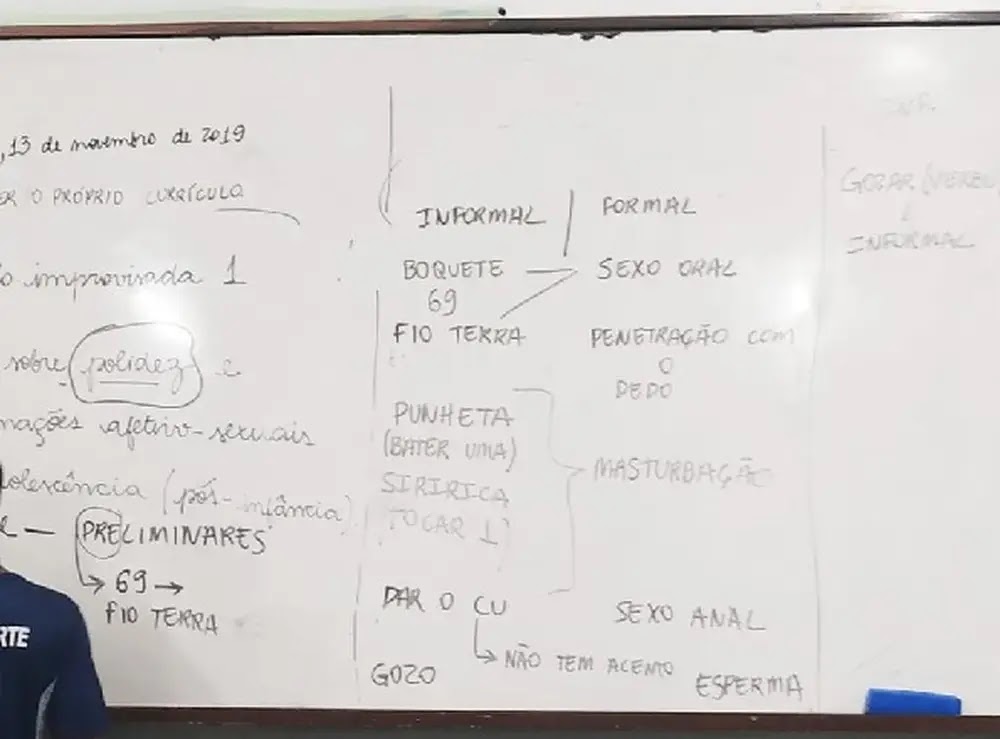 , 13 de novembro de 2019
ER O PRÓPRIO CURRÍCULO
o improvisada 1
sobre polidez e
mações afetivo-sexuais
dolescência (pós-infância)
e — PRELIMINARES
↳ 69 →
FIO TERRA
INFORMAL | FORMAL
BOQUETE — SEXO ORAL
69
FIO TERRA PENETRAÇÃO COM
O
DEDO
PUNHETA
(BATER UMA)
SIRIRICA
(TOCAR 1)
MASTURBAÇÃO
DAR O CU SEXO ANAL
↳ NÃO TEM ACENTO
GOZO ESPERMA
GOZAR (VERBO
↓
INFORMAL
RTE